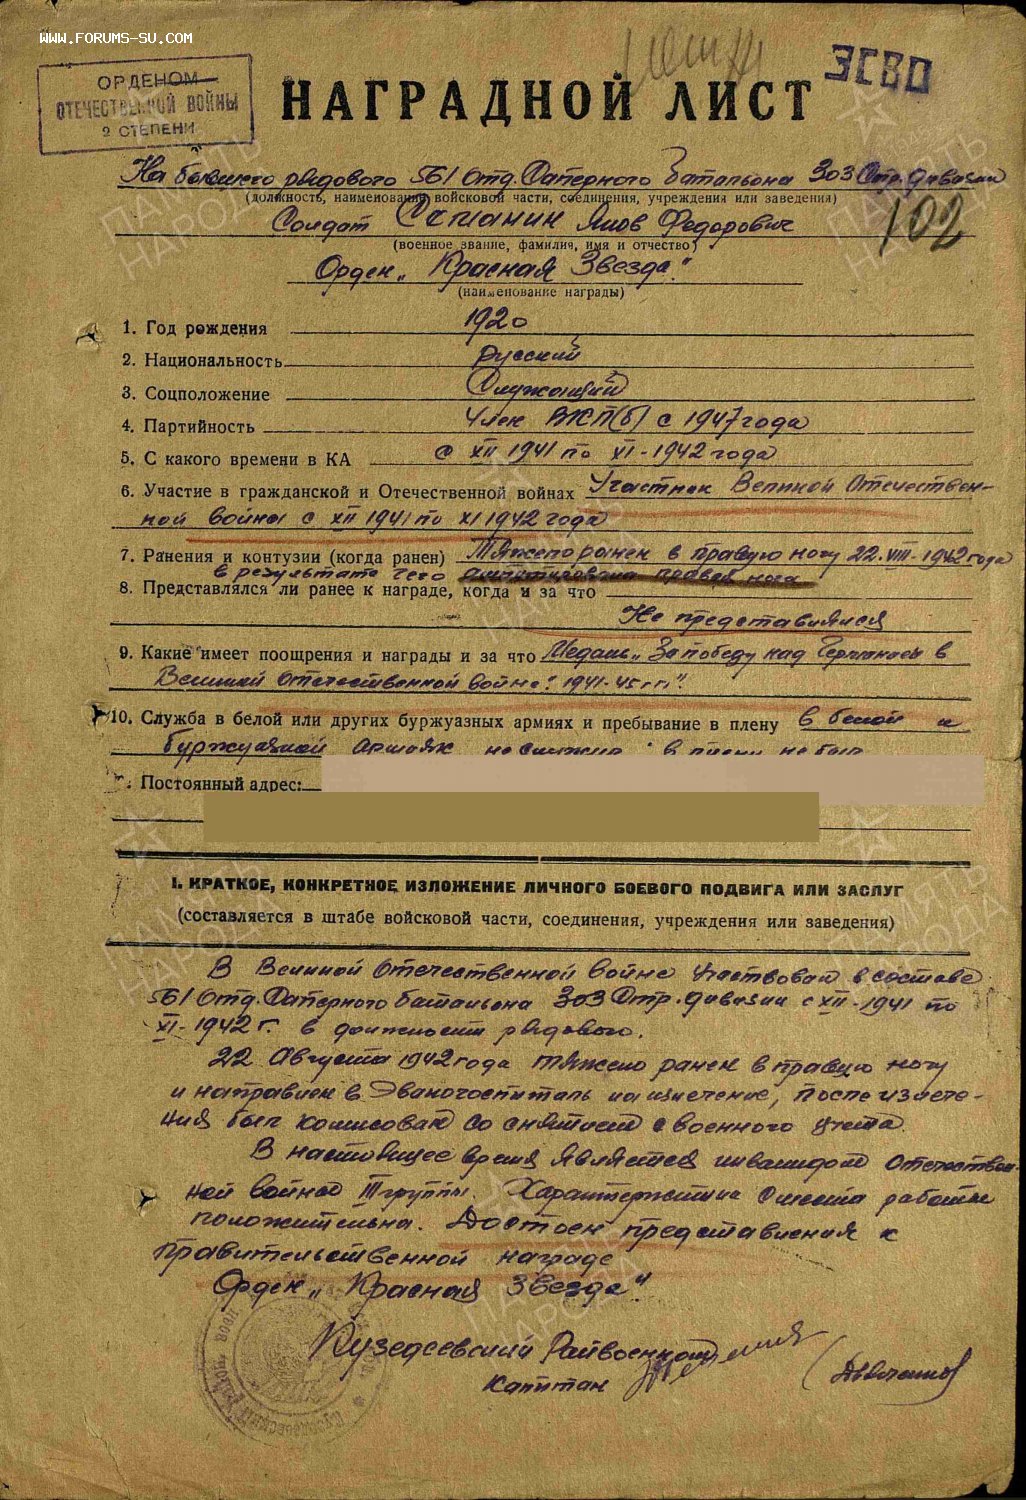 WWW.FORUMS-SU.COM
ОРДЕНОМ
ОТЕЧЕСТВЕННОЙ ВОЙНЫ
2 СТЕПЕНИ
ЗСВО
НАГРАДНОЙ ЛИСТ
На бывшего рядового 561 отд. Саперного батальона 303 Стр. дивизии
(должность, наименование войсковой части, соединения, учреждения или заведения)
Солдат Яков Федорович
102
(военное звание, фамилия, имя и отчество)
Орден „Красная Звезда"
(наименование награды)
1. Год рождения 1920
2. Национальность русский
3. Соцположение Служащий
4. Партийность Член ВКП(б) с 1947 года
5. С какого времени в КА с XII 1941 по XI-1942 года
6. Участие в гражданской и Отечественной войнах Участник Великой Отечествен-
ной войны с XII 1941 по XI 1942 года
7. Ранения и контузии (когда ранен) Тяжело ранен в правую ногу 22.VIII-1942 года
в результате чего ампутирована правая нога
8. Представлялся ли ранее к награде, когда и за что
Не представлялся
9. Какие имеет поощрения и награды и за что Медаль „За победу над Германией в
Великой Отечественной войне" 1941-45 гг".
10. Служба в белой или других буржуазных армиях и пребывание в плену в белой и
буржуазной армиях не служил, в плену не был
Постоянный адрес:
I. КРАТКОЕ, КОНКРЕТНОЕ ИЗЛОЖЕНИЕ ЛИЧНОГО БОЕВОГО ПОДВИГА ИЛИ ЗАСЛУГ
(составляется в штабе войсковой части, соединения, учреждения или заведения)
В Великой Отечественной войне участвовал в составе
561 отд. Саперного батальона 303 Стр. дивизии с XII-1941 по
XI-1942 г. в должности рядового.
22 Августа 1942 года тяжело ранен в правую ногу
и направлен в Эвакогоспиталь на излечение, после излече-
ния был комисован со снятием с военного учета.
В настоящее время является инвалидом Отечествен-
ной войны III группы. Характеристика с места работы
положительна. Достоин представления к
правительственной награде
Орден „Красная Звезда".
Кузедеевский Райвоенком
Капитан
ПАМЯТЬ НАРОДА